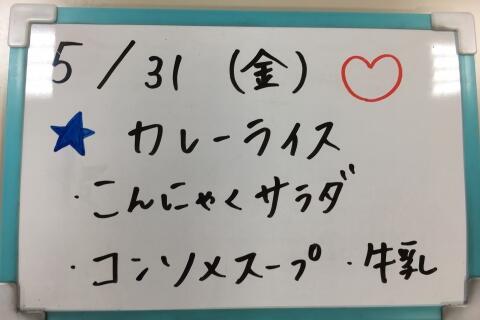 5/31 (金)
カレーライス
・こんにゃくサラダ
・コンソメスープ ・牛乳